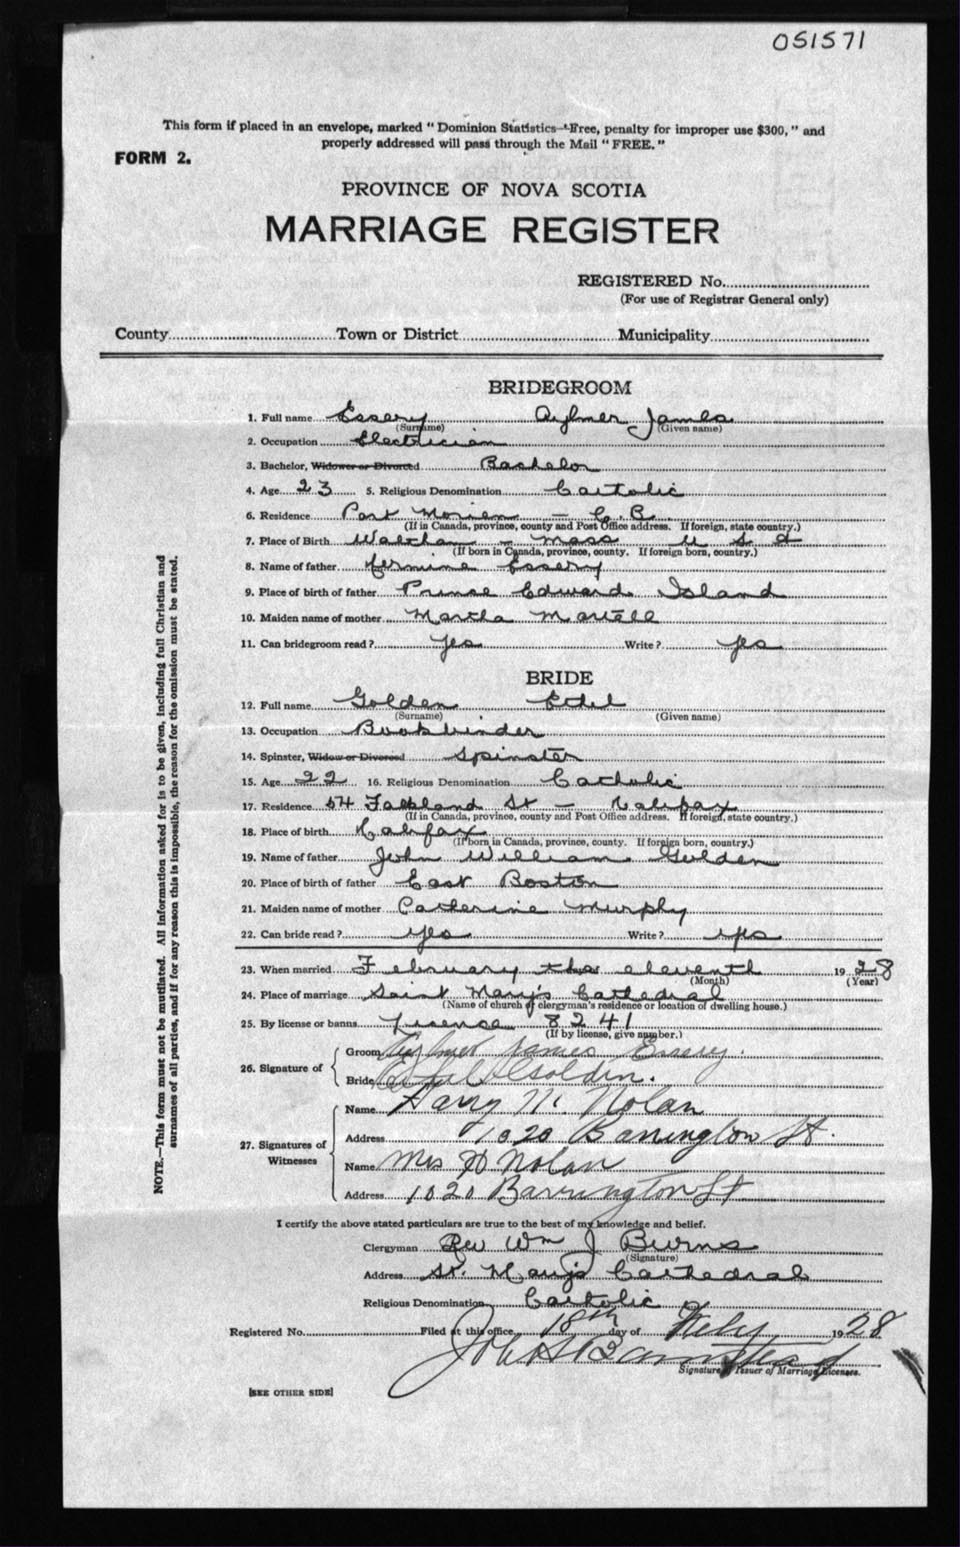 051571
This form if placed in an envelope, marked "Dominion Statistics—Free, penalty for improper use $300," and
properly addressed will pass through the Mail "FREE."
FORM 2.
PROVINCE OF NOVA SCOTIA
MARRIAGE REGISTER
REGISTERED No.
(For use of Registrar General only)
County Town or District Municipality
BRIDEGROOM
1. Full name Essery Aylmer James
(Surname) (Given name)
2. Occupation Electrician
3. Bachelor, Widower or Divorced Bachelor
4. Age 23 5. Religious Denomination Catholic
6. Residence Port Morien - C.B.
(If in Canada, province, county and Post Office address. If foreign, state country.)
7. Place of Birth Waltham - Mass U S A
(If born in Canada, province, county. If foreign born, country.)
8. Name of father Essery
9. Place of birth of father Prince Edward Island
10. Maiden name of mother Martha Martell
11. Can bridegroom read? Yes Write? Yes
BRIDE
12. Full name Golden Ethel
(Surname) (Given name)
13. Occupation Bookbinder
14. Spinster, Widow or Divorced Spinster
15. Age 22 16. Religious Denomination Catholic
17. Residence 54 Falkland St - Halifax
(If in Canada, province, county and Post Office address. If foreign, state country.)
18. Place of birth Halifax
(If born in Canada, province, county. If foreign born, country.)
19. Name of father John William Golden
20. Place of birth of father East Boston
21. Maiden name of mother Catherine Murphy
22. Can bride read? Yes Write? Yes
23. When married February the eleventh 1928
(Month) (Year)
24. Place of marriage Saint Mary's Cathedral
(Name of church or clergyman's residence or location of dwelling house.)
25. By license or banns License 8241
(If by license, give number.)
26. Signature of
Groom Aylmer James Essery.
Bride Ethel Golden.
27. Signatures of Witnesses
Name Harry N. Nolan
Address 1020 Barrington St.
Name Mrs H Nolan
Address 1020 Barrington St
I certify the above stated particulars are true to the best of my knowledge and belief.
Clergyman Rev Wm J Burns
(Signature)
Address St. Mary's Cathedral
Religious Denomination Catholic
Registered No. Filed at this office 18th day of Feby 1928
Signature of Issuer of Marriage Licenses.
[SEE OTHER SIDE]
NOTE.—This form must not be mutilated. All information asked for is to be given, including full Christian and
surnames of all parties, and if for any reason this is impossible, the reason for the omission must be stated.